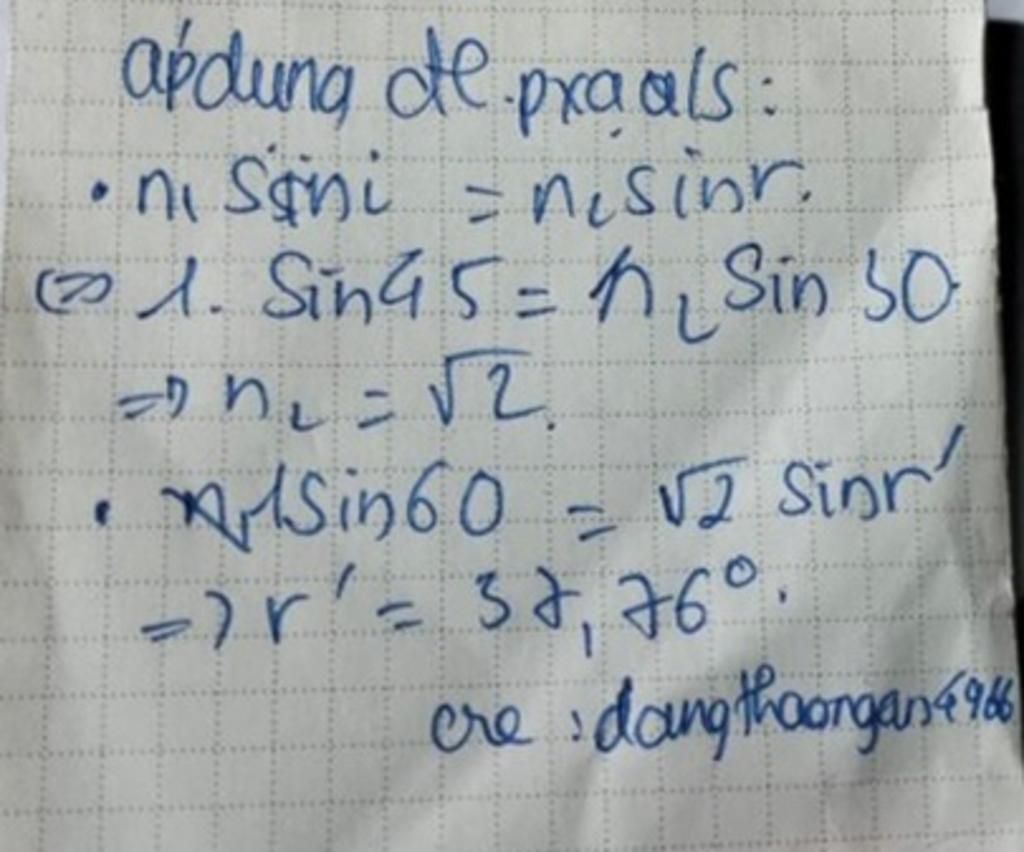 ápdụng đl pxạ als:
• n₁ Sini = n₂ sinr.
<=> 1. Sin45 = n₂ Sin 30
=> n₂ = √2.
• 1Sin60 = √2 Sinr'
=> r' = 37,76°.
cre : dangthaongan4966